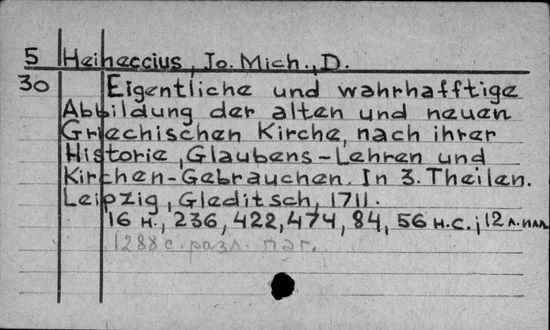 5 Heineccius, Jo. Mich., D.
30 Eigentliche und wahrhafftige
Abbildung der alten und neuen
Griechischen Kirche, nach ihrer
Historie, Glaubens-Lehren und
Kirchen-Gebrauchen. In 3. Theilen.
Leipzig, Gleditsch, 1711.
16 н., 236, 422, 474, 84, 56 н.с.; 12 л. илл.
1288 с. разл. паг.